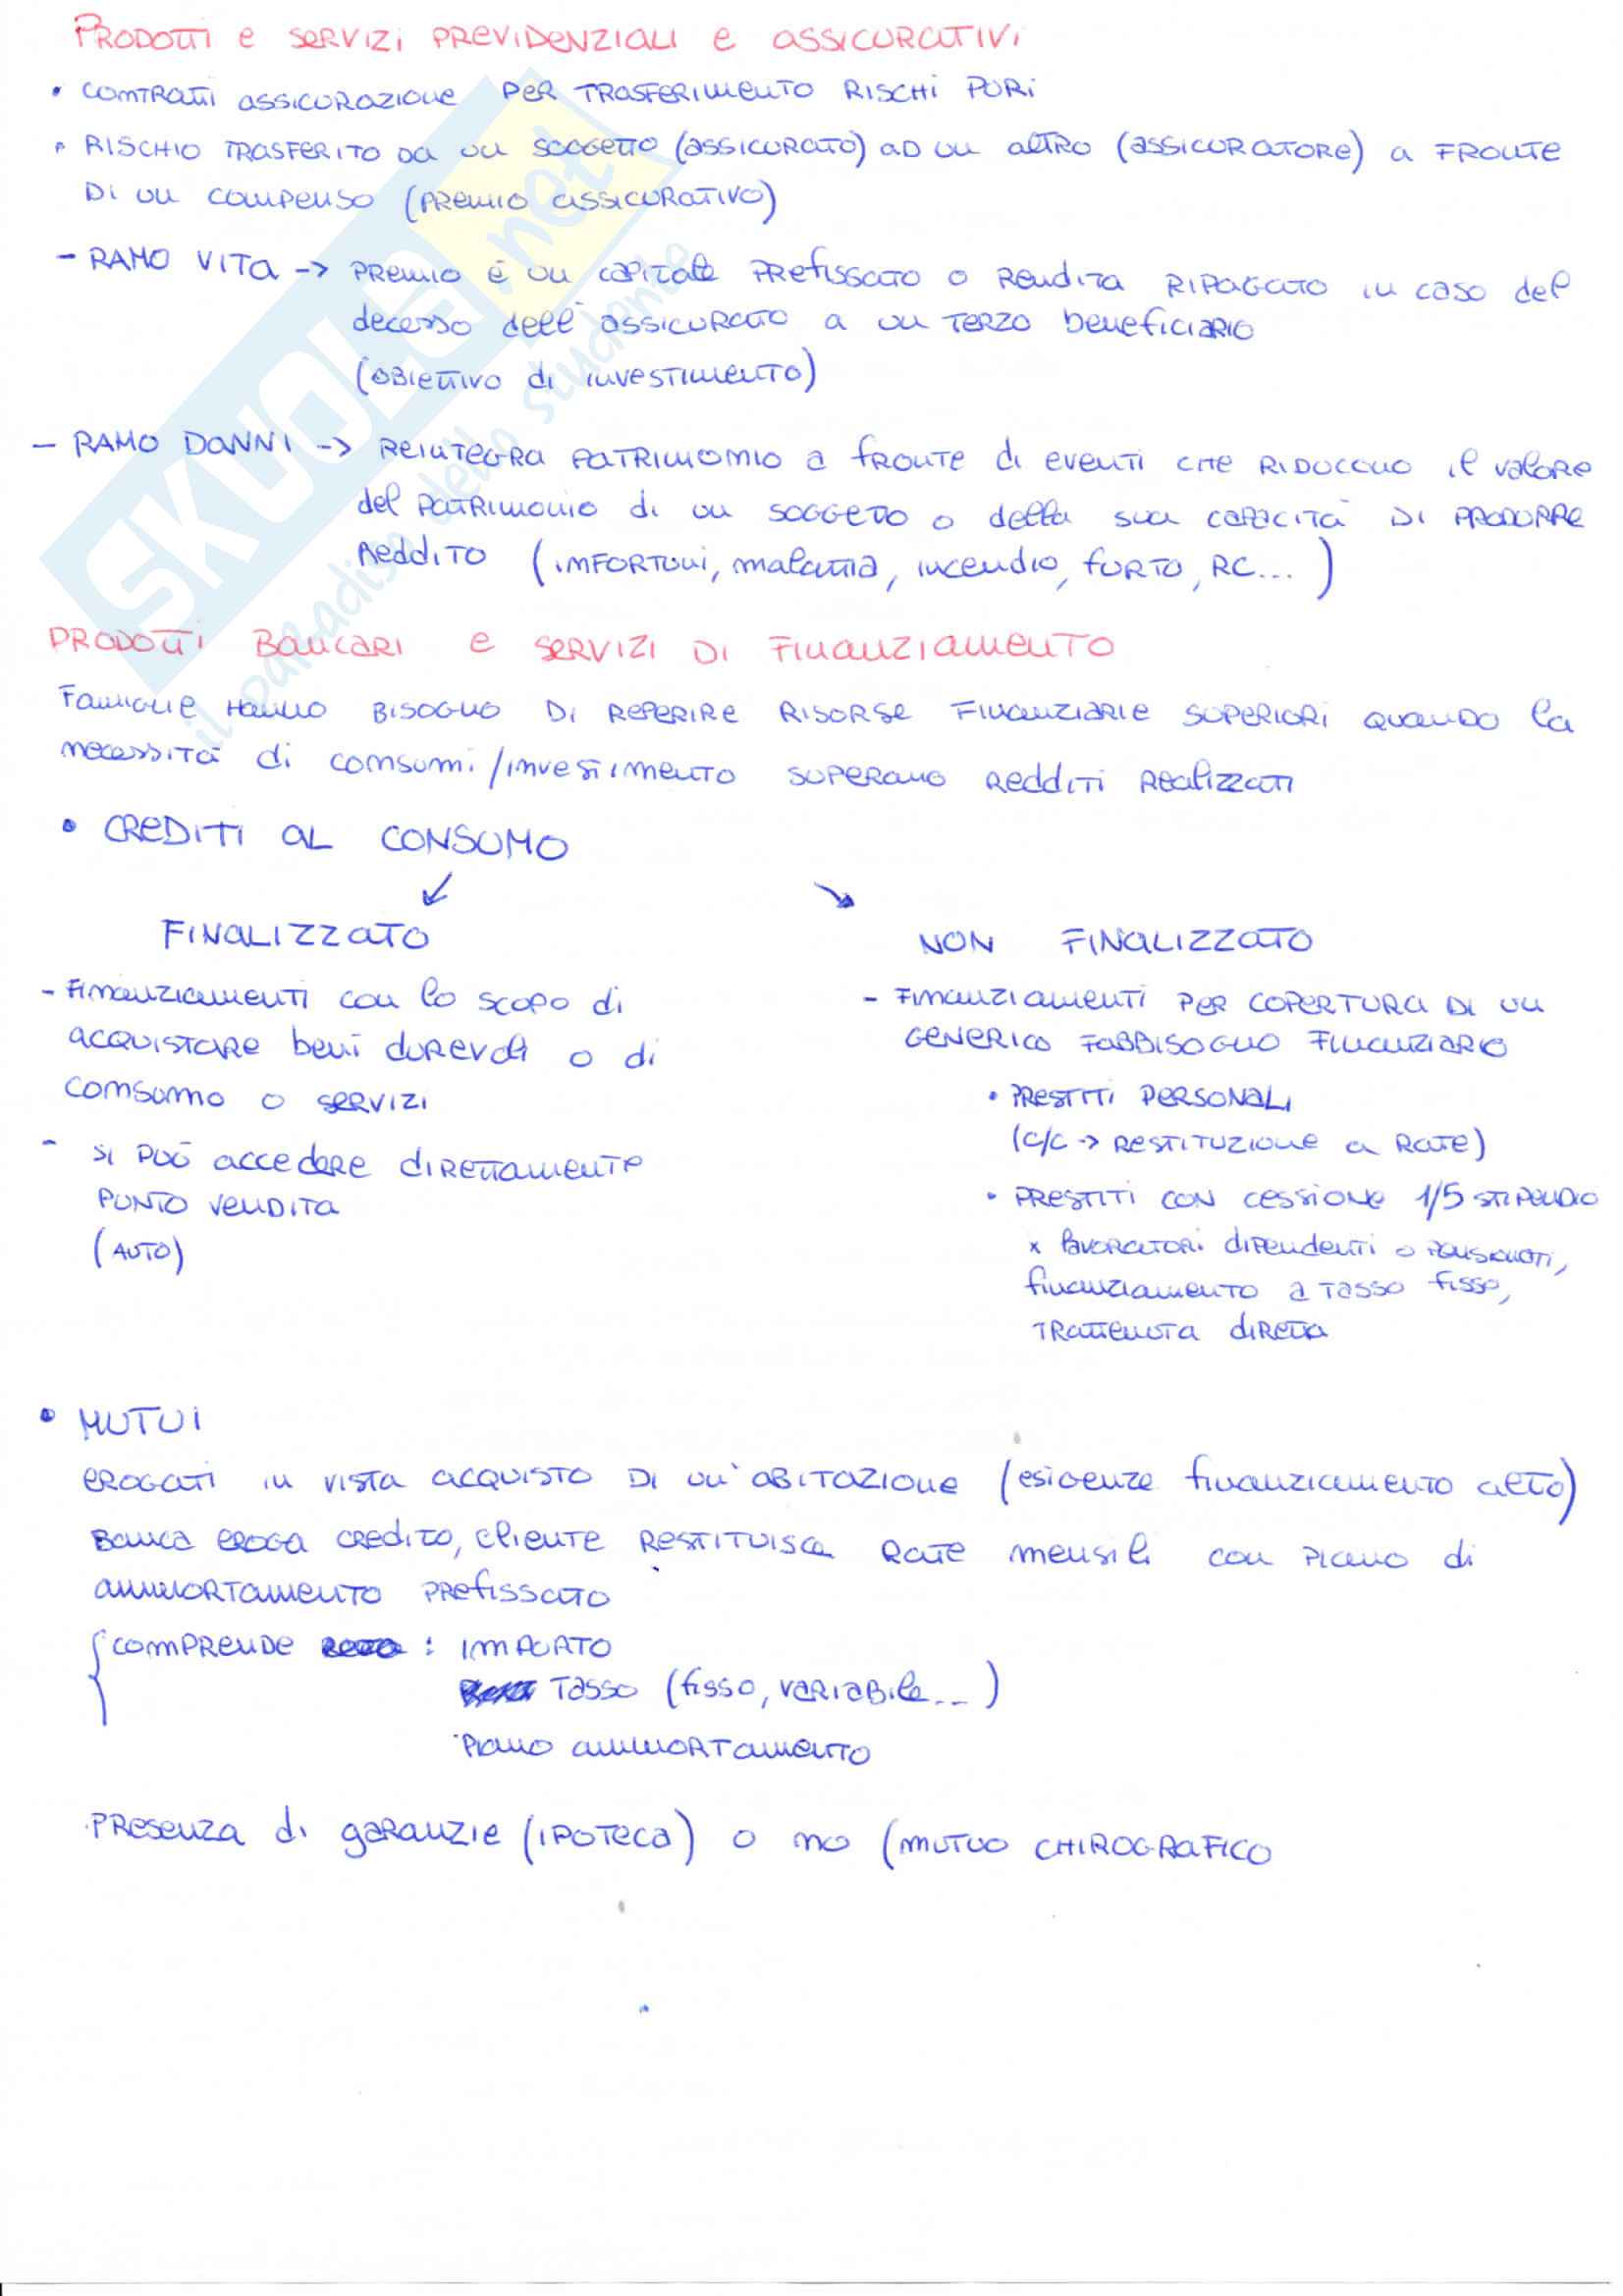 PRODOTTI e SERVIZI PREVIDENZIALI e ASSICURATIVI
• CONTRATTI ASSICURAZIONE PER TRASFERIMENTO RISCHI PURI
• RISCHIO TRASFERITO DA UN SOGGETTO (ASSICURATO) AD UN ALTRO (ASSICURATORE) A FRONTE
DI UN COMPENSO (PREMIO ASSICURATIVO)
- RAMO VITA -> PREMIO È UN CAPITALE PREFISSATO O RENDITA RIPAGATO IN CASO del
decesso dell'ASSICURATO A UN TERZO beneficiARIO
(OBIETTIVO di INVESTIMENTO)
- RAMO DANNI -> REINTEGRA PATRIMONIO A FRONTE di EVENTI CHE RIDUCONO il VALORE
del PATRIMONIO di UN SOGGETTO O della SUA CAPACITÀ DI PRODURRE
REDDITO (INFORTUNI, malattia, incendio, FURTO, RC...)
PRODOTTI BANCARI e SERVIZI DI FINANZIAMENTO
FAMIGLIE HANNO BISOGNO DI REPERIRE RISORSE FINANZIARIE SUPERIORI QUANDO la
necessità di consumi/INVESTIMENTO SUPERANO REDDITI REALIZZATI
• CREDITI AL CONSUMO
FINALIZZATO
NON FINALIZZATO
- FINANZIAMENTI con lo scopo di
ACQUISTARE beni durevoli o di
CONSUMO o SERVIZI
- SI PUÒ accedere DIRETTAMENTE
PUNTO VENDITA
(AUTO)
- FINANZIAMENTI PER COPERTURA DI UN
GENERICO FABBISOGNO FINANZIARIO
• PRESTITI PERSONALI
(C/C -> RESTITUZIONE A RATE)
• PRESTITI CON CESSIONE 1/5 STIPENDIO
x lavoratori dipendenti o PENSIONATI,
finanziamento a TASSO FISSO,
TRATTENUTA DIRETTA
• MUTUI
EROGATI IN VISTA ACQUISTO DI UN'ABITAZIONE (esigenze finanziamento alto)
BANCA EROGA CREDITO, cliente RESTITUISCE RATE mensili con PIANO di
AMMORTAMENTO PREFISSATO
COMPRENDE : IMPORTO
TASSO (fisso, VARIABILE...)
PIANO AMMORTAMENTO
PRESENZA di garanzie (IPOTECA) o no (MUTUO CHIROGRAFICO
SKUOLA.net
il paradiso dello studente